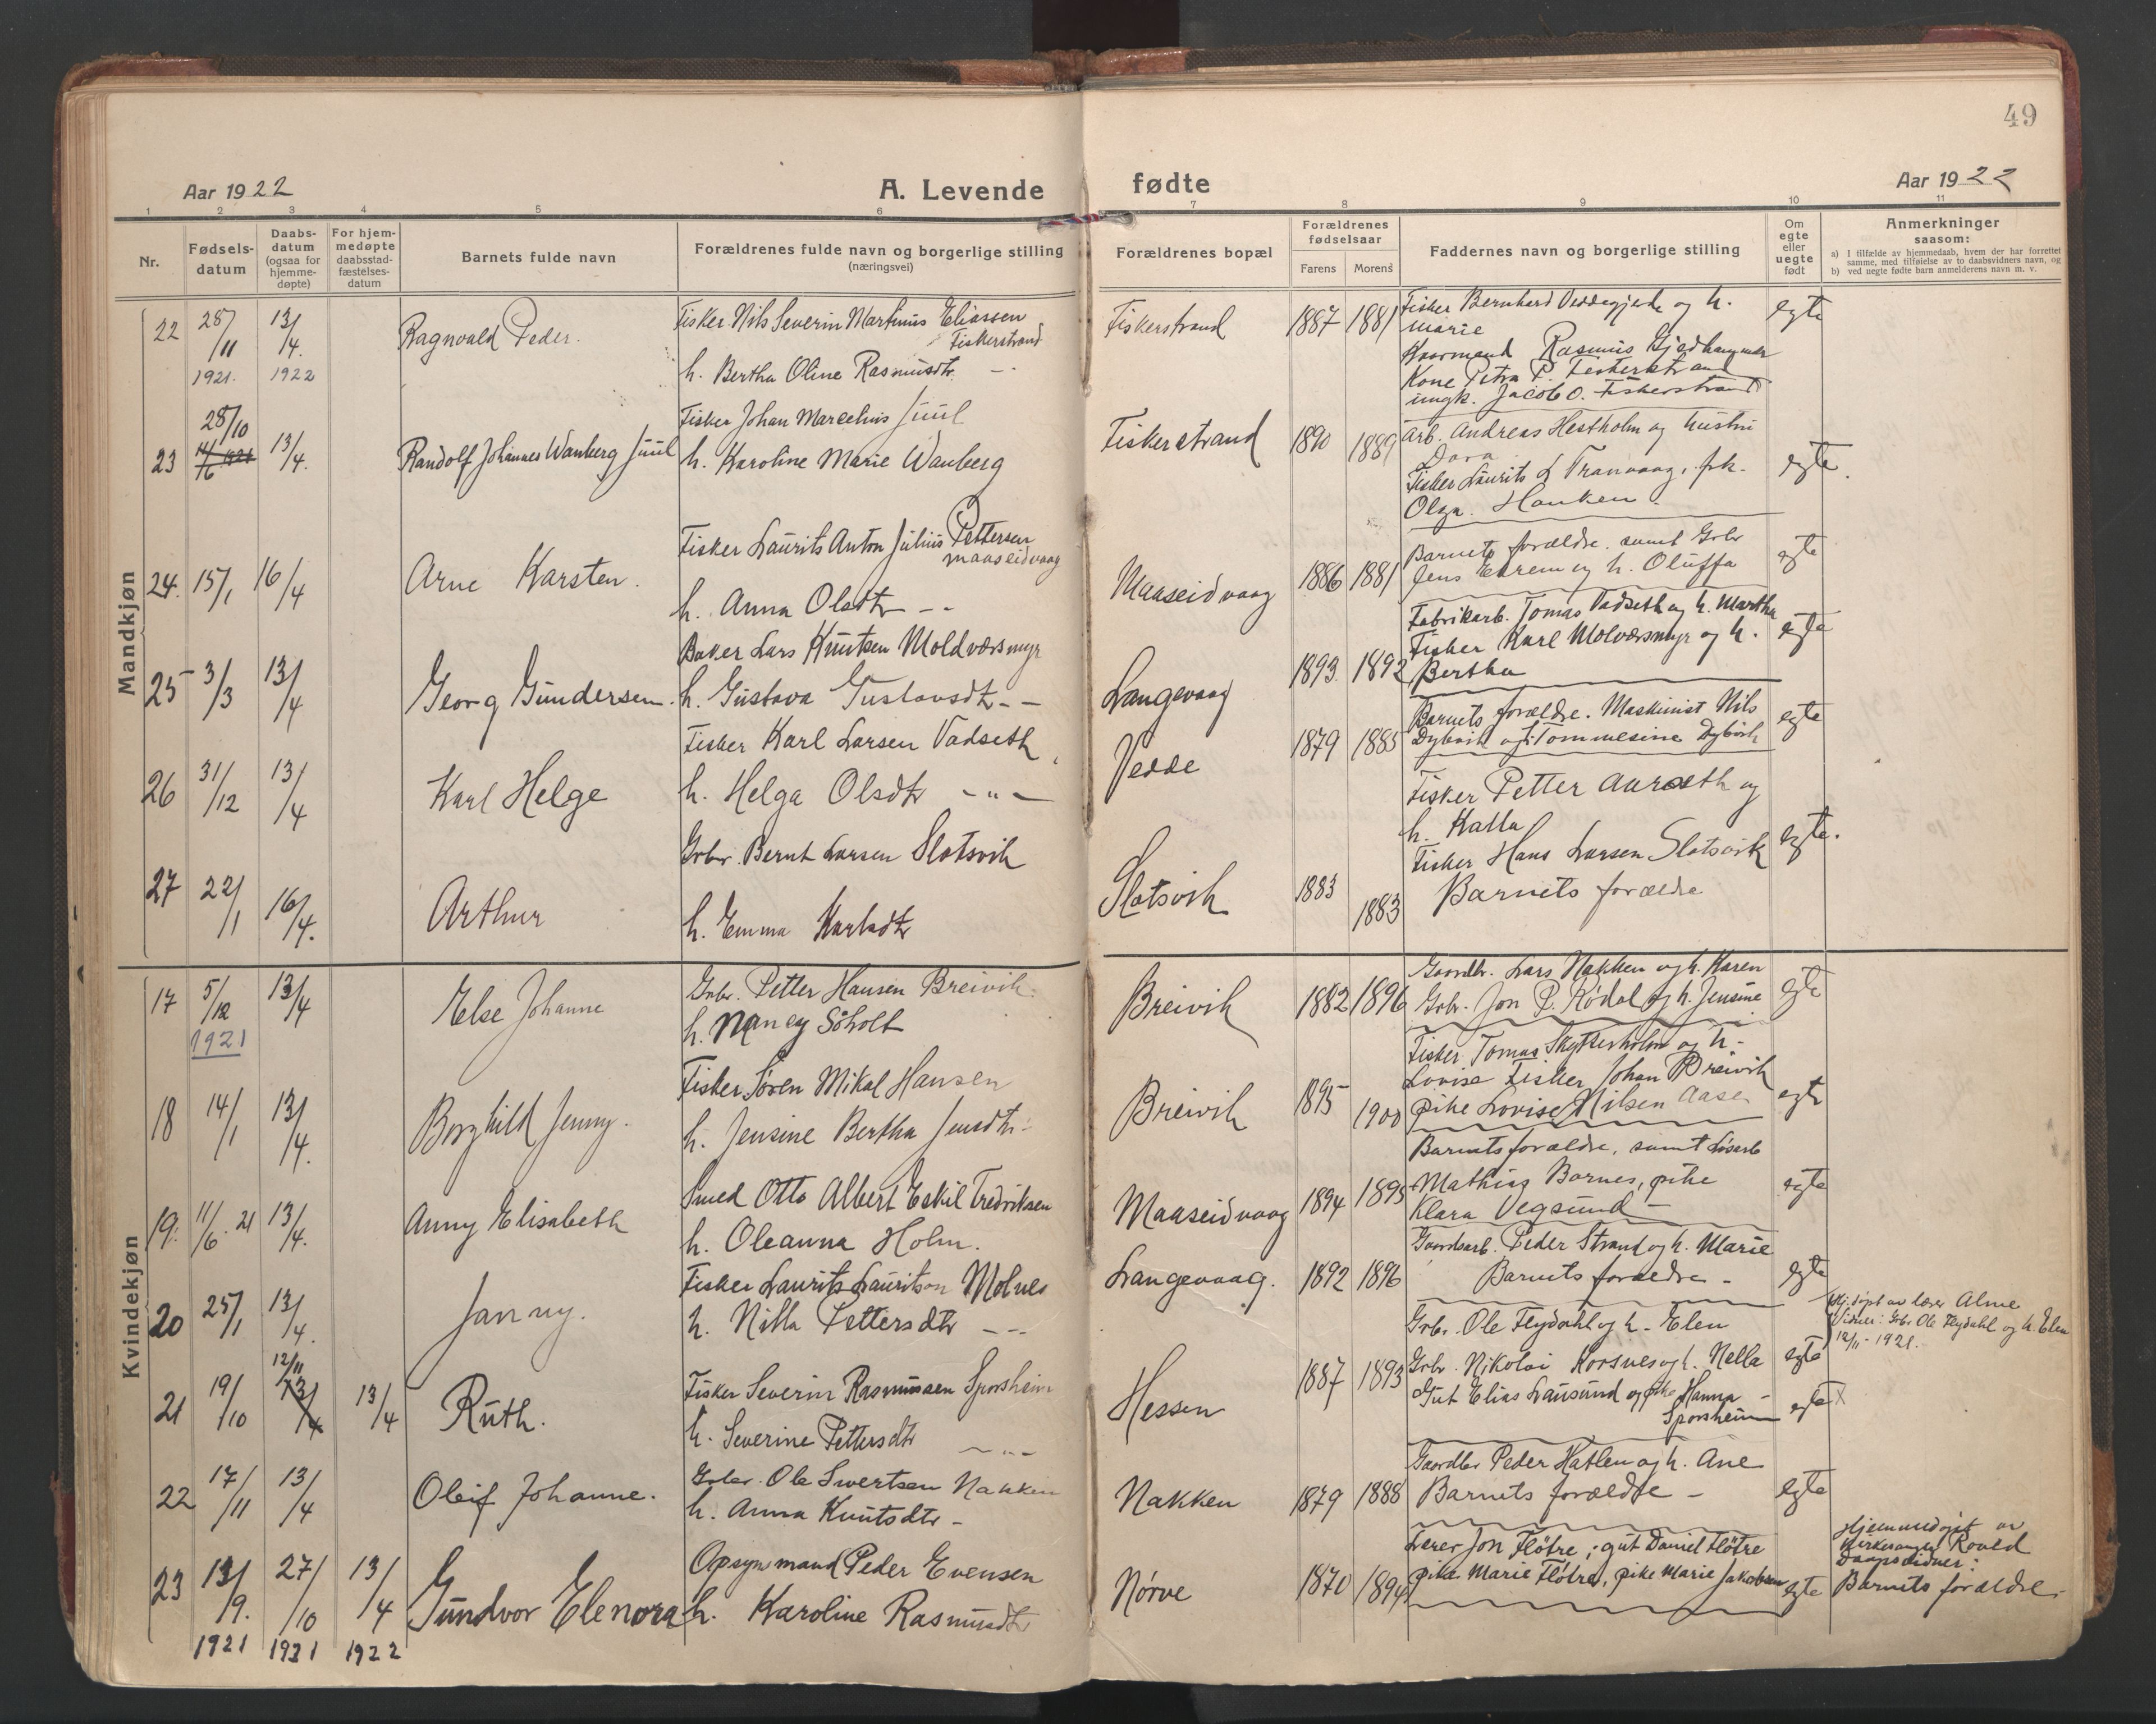 49
Aar 1922
A. Levende fødte
Aar 1922
1 2 3 4 5 6 7 8 9 10 11
Nr.
Fødsels-
datum
Daabs-
datum
(ogsaa for
hjemme-
døpte)
For hjem-
medøpte
daabsstad-
fæstelses-
datum
Barnets fulde navn
Forældrenes fulde navn og borgerlige stilling
(næringsvei)
Forældrenes bopæl
Forældrenes
fødselsaar
Farens Morens
Faddernes navn og borgerlige stilling
Om
egte
eller
uegte
født
Anmerkninger
saasom:
a) I tilfælde av hjemmedaab, hvem der har forrettet
samme, med tilføielse av to daabsvidners navn, og
b) ved uegte fødte barn anmelderens navn m. v.
Mandkjøn
22 28/11 1921. 13/4. 1922
Ragnvald Peder.
Fisker Nils Severin Martinus Eliassen
Fiskerstrand
h. Bertha Oline Rasmusdtr. -"-
Fiskerstrand 1887 1881
Fisker Bernhard Veddegjerde og h.
Marie
Kaarmand Rasmus
Kone Petra P. Fiskerstrand
ungk. Jacob O. Fiskerstrand
egte
23 28/10 13/4.
Randolf Johannes Wanberg Juul
Fisker Johan Marcelius Juul
h. Karoline Marie Wanberg
Fiskerstrand 1890 1889
Arb. Andreas Hestholm og hustru
Dora
Fisker Laurits L Tranvaag, frk.
Olga Hanken.
egte.
24. 15/1 16/4
Arne Karsten.
Fisker Laurits Anton Julius Pettersen
Maaseidvaag
h. Anna Olsdtr -"-
Maaseidvaag 1886 1881
Barnets forældre. samt Grbr
Jens Ekrem og h. Oluffa
egte
25 3/3 13/4
Georg Gundersen.
Baker Lars Knutsen Moldværsmyr
h. Gustava Gustavsdtr -"-
Langevaag 1893 1892
Fabrikarb. Tomas Vadseth og h. Martha
Fisker Karl Molværsmyr og h.
Bertha
egte
26 31/12 13/4
Karl Helge
Fisker Karl Larsen Vadseth
h. Helga Olsdtr -"-
Vedde 1879 1885
Barnets forældre. Maskinist Nils
Dybvik og h. Tommesine Dybvik
egte
27 22/1 16/4.
Arthur
Grbr. Bernt Larsen Slotsvik
h. Emma Karlsdtr
Slotsvik 1883 1883
Fisker Petter Aurseth og
h. Kalla
Fisker Hans Larsen Slotsvik
Barnets forældre
egte.
Kvindekjøn
17 5/12 1921 13/4
Else Johanne
Grbr. Petter Hansen Breivik.
h. Nancy Söholt
Breivik 1882 1896
Gaardbr. Lars Nakken og h. Karen
Grbr. Jon P. Rødal og h. Jensine
egte
18 14/1 13/4.
Borghild Jenny.
Fisker Søren Mikal Hansen
h. Jensine Bertha Jensdtr.
Breivik 1895 1900
Fisker Tomas Skytterholm og h.
Lovise Fisker Johan Breivik
pike Lovise Nilsen Aase
egte
19. 11/6. 21 13/4.
Anny Elisabeth
Smed Otto Albert Eskil Fredriksen
h. Oleanna Holm.
Maaseidvaag 1894 1895
Barnets forældre, samt Løsarb
Mathias Barnes, pike
Klara Vegsund
egte
20 25/1 13/4.
Janny.
Fisker Laurits Lauritsen Molnes
h. Nilla Pettersdtr -"-
Langevaag. 1892 1896
Gaardsarb. Peder Strand og h. Marie
Barnets forældre -
egte
21 19/10 12/11 13/4 13/4
Ruth.
Fisker Severin Rasmussen Sporsheim
h. Severine Pettersdtr -"-
Hessen 1887 1893
Grbr. Ole Flydahl og h. Elen
Grbr. Nikolai Korsnes og h. Nella
Gut Elias Lausund og pike Hanna
Sporsheim
egte
egte x
Hj.døpt av lærer Alme
Vidner: Grbr Ole Flydahl og h. Elen
12/11 - 1921.
22 17/11 13/4
Oleif Johanne.
Grbr. Ole Sivertsen Nakken
h. Anna Knutsdtr -
Nakken 1879 1888
Gaardbr Peder Hatlen og h. Ane
Barnets forældre -
egte
23 13/9. 1921 27/10 1921 13/4 1922
Gundvor Elenora
Opsynsmand Peder Evensen
h. Karoline Rasmusdtr
Nørve 1870 1894
Lærer Jon Fløtre; gut Daniel Fløtre
pike Marie Fløtre, pike Marie Jakobsen
egte
Hjemmedøpt av
Kirkesanger Roald
Daapsvidner:
Barnets forældre.